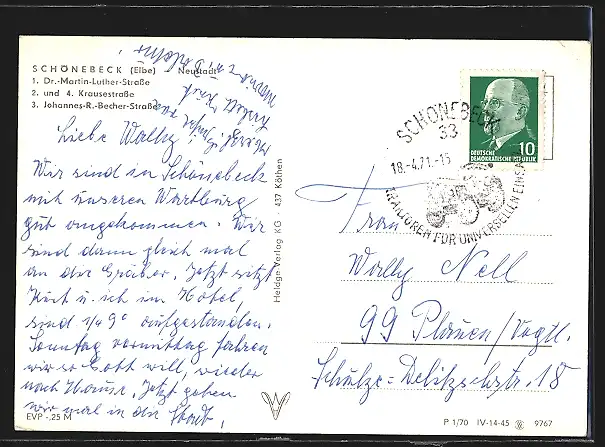 SCHÖNEBECK (Elbe) - Neustadt
1. Dr.-Martin-Luther-Straße
2. und 4. Krausestraße
3. Johannes-R.-Becher-Straße
Liebe Wally!
Wir sind in Schönebeck
mit unseren Wartburg
gut angekommen. Wir
sind dann gleich mal
an der Jetzt sitzt
Kurt u. ich im Hotel,
sind 1/4 9° aufgestanden.
Sonntag vormittag fahren
wir so Gott will, wieder
nach Hause. Jetzt gehen
wir mal in die Stadt.
Herzl. Grüße von
Kurt
EVP -,25 M
Heldge-Verlag KG · 437 Köthen
SCHÖNEBECK
33
18.-4.71.-15
TRAKTOREN FÜR UNIVERSELLEN EINSATZ
DEUTSCHE
DEMOKRATISCHE REPUBLIK
10
Frau
Wally Nell
99 Plauen/Vogtl.
Schulze-Delitzschstr. 18
P 1/70 IV-14-45 9767